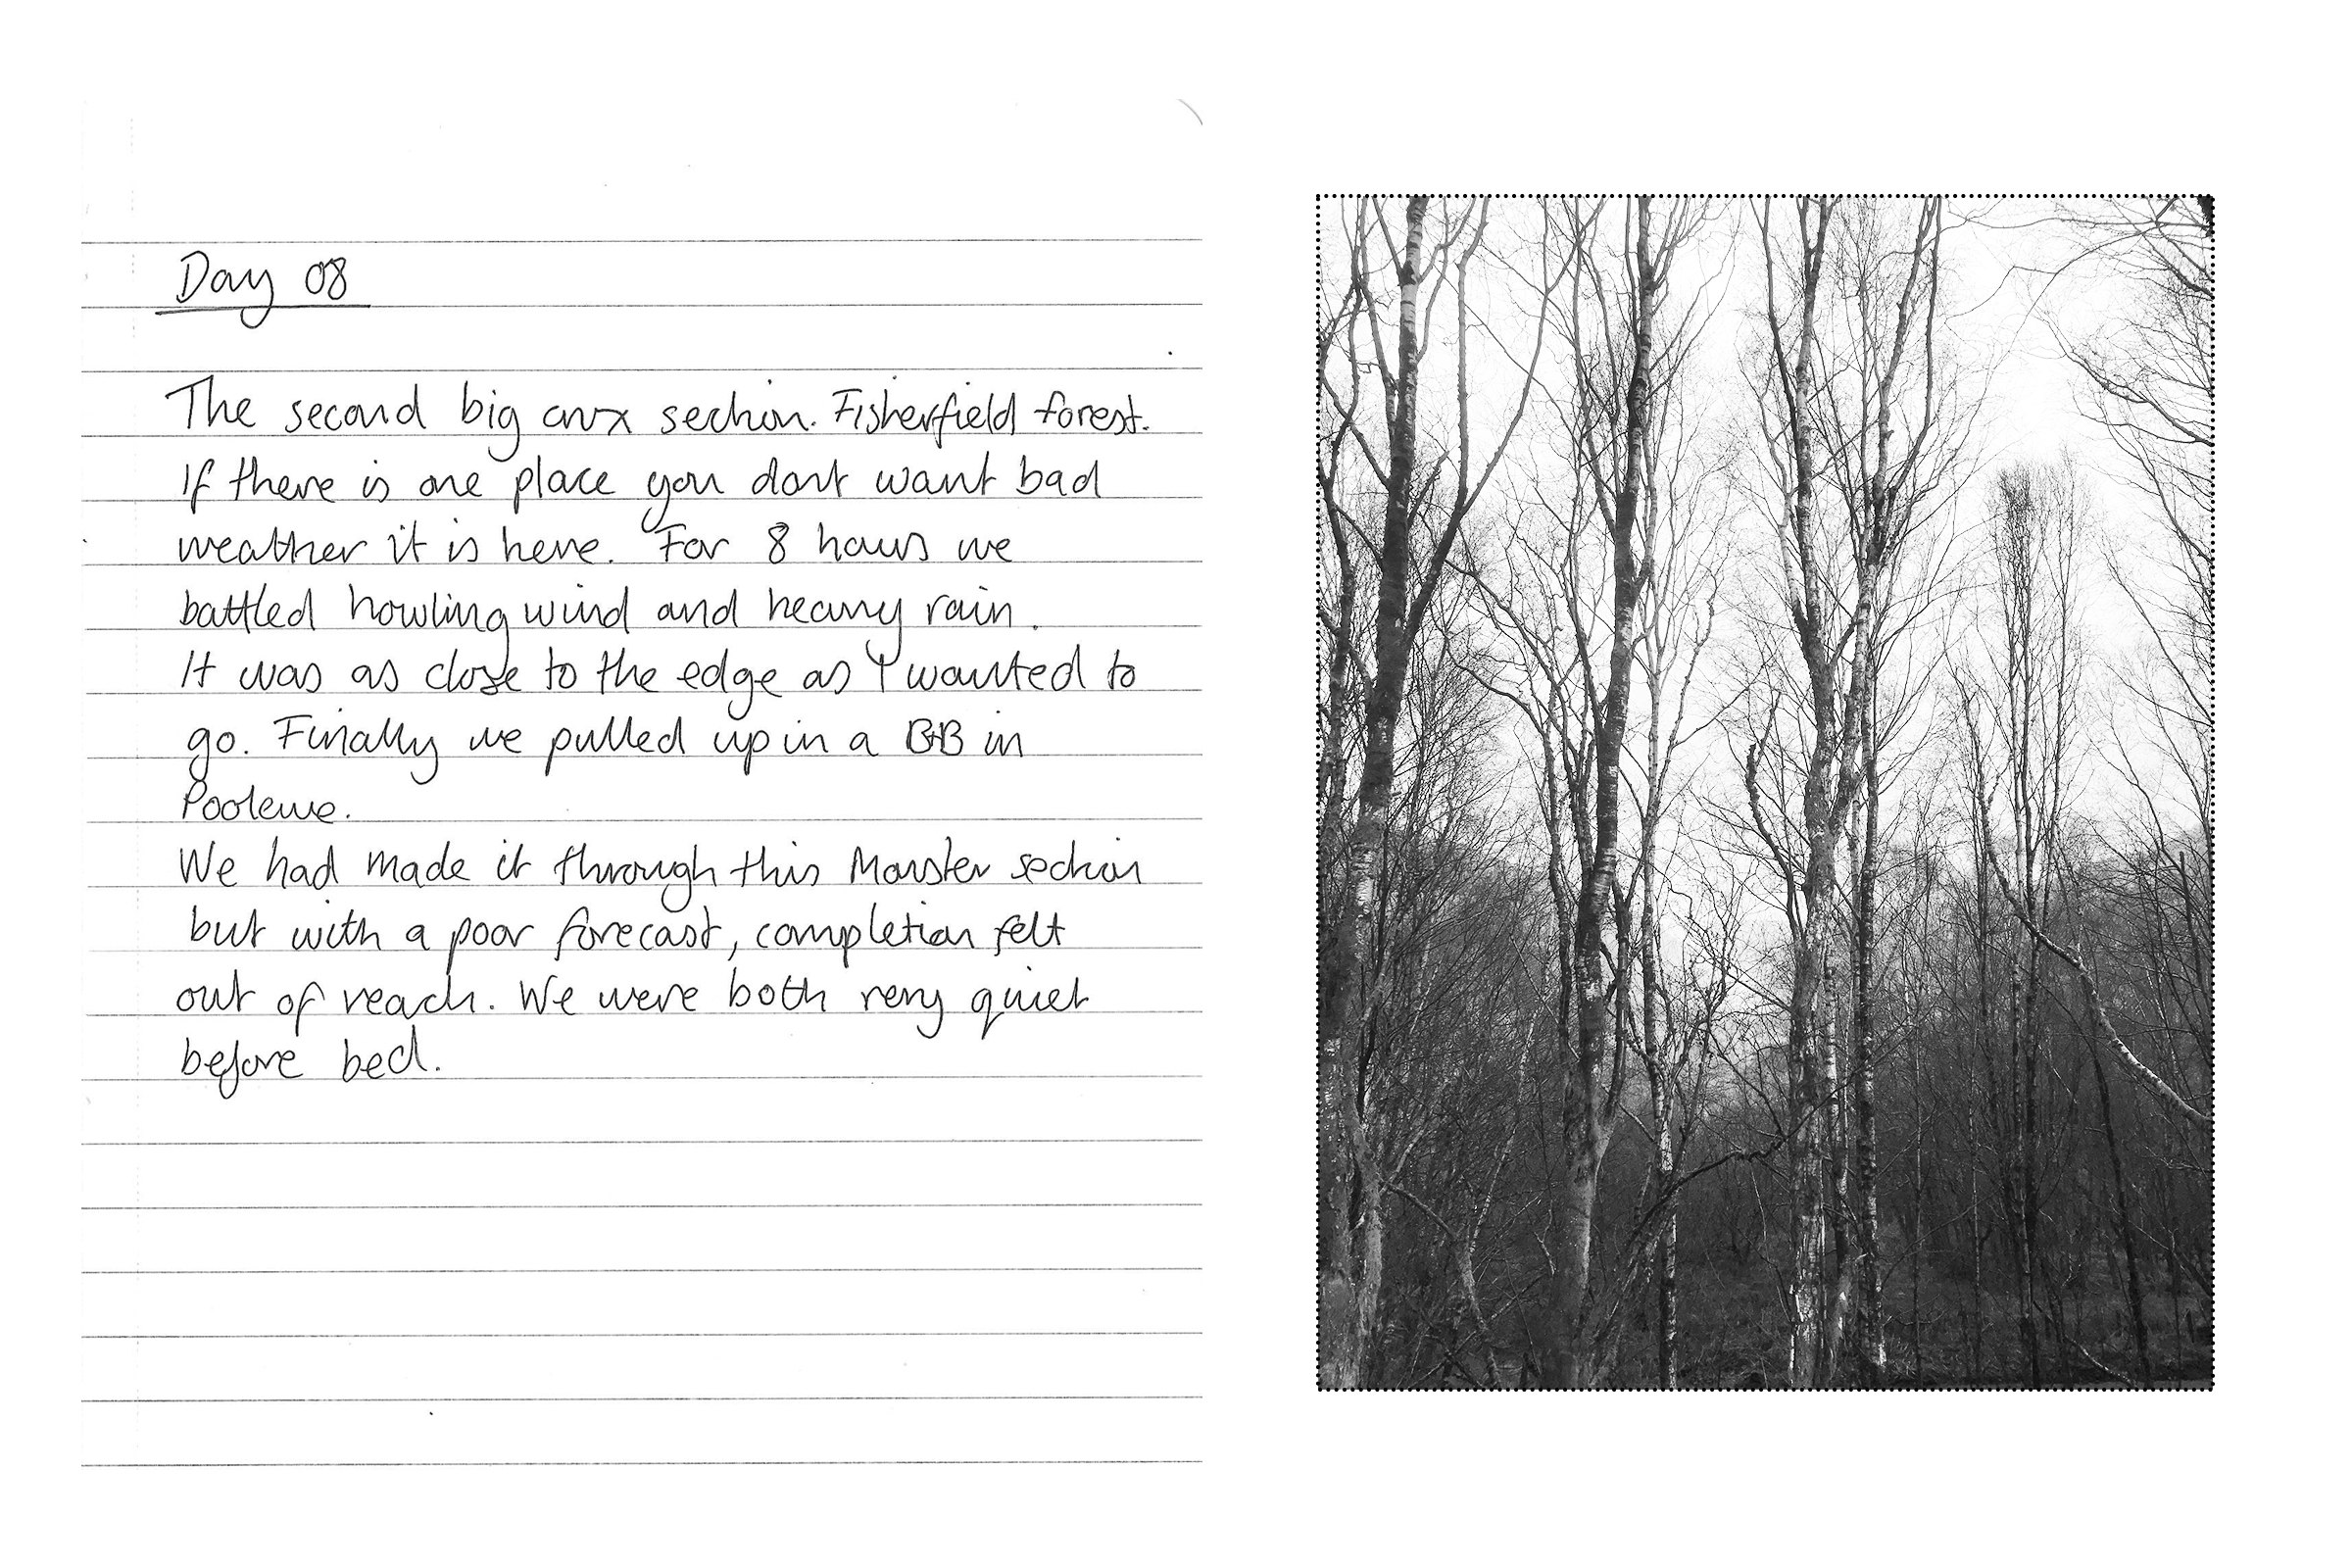 Day 08
The second big crux section. Fisherfield forest.
If there is one place you dont want bad
weather it is here. For 8 hours we
battled howling wind and heavy rain.
It was as close to the edge as I wanted to
go. Finally we pulled up in a B+B in
Poolewe.
We had made it through this Monster section
but with a poor forecast, completion felt
out of reach. We were both very quiet
before bed.